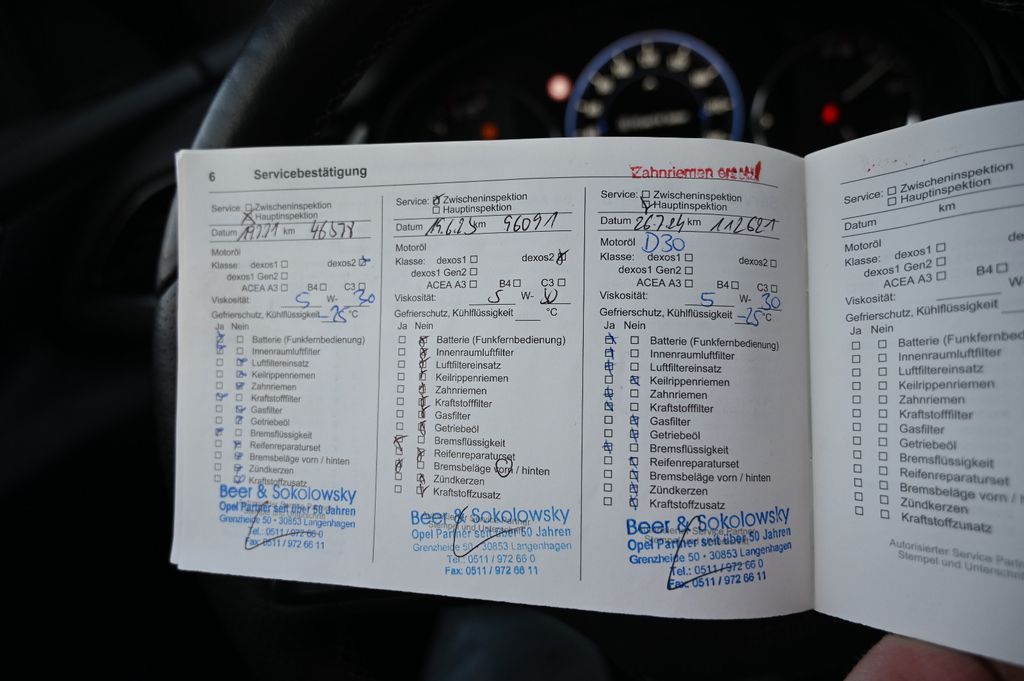 6 Servicebestätigung
Zahnriemen
Service: Zwischeninspektion
Hauptinspektion
Datum km 46578
Motoröl
Klasse: dexos1 dexos2
dexos1 Gen2
ACEA A3 B4 C3
Viskosität: 5 W- 30
Gefrierschutz, Kühlflüssigkeit -25 °C
Ja Nein
Batterie (Funkfernbedienung)
Innenraumluftfilter
Luftfiltereinsatz
Keilrippenriemen
Zahnriemen
Kraftstofffilter
Gasfilter
Getriebeöl
Bremsflüssigkeit
Reifenreparaturset
Bremsbeläge vorn / hinten
Zündkerzen
Kraftstoffzusatz
Beer & Sokolowsky
Opel Partner seit über 50 Jahren
Grenzheide 50 • 30853 Langenhagen
Tel.: 0511 / 972 66 0
Fax: 0511 / 972 66 11
Service: Zwischeninspektion
Hauptinspektion
Datum 15.6.23 km 96091
Motoröl
Klasse: dexos1 dexos2
dexos1 Gen2
ACEA A3 B4 C3
Viskosität: 5 W- 30
Gefrierschutz, Kühlflüssigkeit °C
Ja Nein
Batterie (Funkfernbedienung)
Innenraumluftfilter
Luftfiltereinsatz
Keilrippenriemen
Zahnriemen
Kraftstofffilter
Gasfilter
Getriebeöl
Bremsflüssigkeit
Reifenreparaturset
Bremsbeläge vorn / hinten
Zündkerzen
Kraftstoffzusatz
Beer & Sokolowsky
Opel Partner seit über 50 Jahren
Grenzheide 50 • 30853 Langenhagen
Tel.: 0511 / 972 66 0
Fax: 0511 / 972 66 11
Service: Zwischeninspektion
Hauptinspektion
Datum 26.7.24 km 112621
Motoröl D30
Klasse: dexos1 dexos2
dexos1 Gen2
ACEA A3 B4 C3
Viskosität: 5 W- 30
Gefrierschutz, Kühlflüssigkeit -25 °C
Ja Nein
Batterie (Funkfernbedienung)
Innenraumluftfilter
Luftfiltereinsatz
Keilrippenriemen
Zahnriemen
Kraftstofffilter
Gasfilter
Getriebeöl
Bremsflüssigkeit
Reifenreparaturset
Bremsbeläge vorn / hinten
Zündkerzen
Kraftstoffzusatz
Beer & Sokolowsky
Opel Partner seit über 50 Jahren
Grenzheide 50 • 30853 Langenhagen
Tel.: 0511 / 972 66 0
Fax: 0511 / 972 66 11
Service: Zwischeninspektion
Hauptinspektion
Datum km
Motoröl
Klasse: dexos1 de
dexos1 Gen2
ACEA A3 B4
Viskosität: W-
Gefrierschutz, Kühlflüssigkeit
Ja Nein
Batterie (Funkfernbed
Innenraumluftfilter
Luftfiltereinsatz
Keilrippenriemen
Zahnriemen
Kraftstofffilter
Gasfilter
Getriebeöl
Bremsflüssigkeit
Reifenreparaturset
Bremsbeläge vorn /
Zündkerzen
Kraftstoffzusatz
Autorisierter Service Part
Stempel und Unterschri